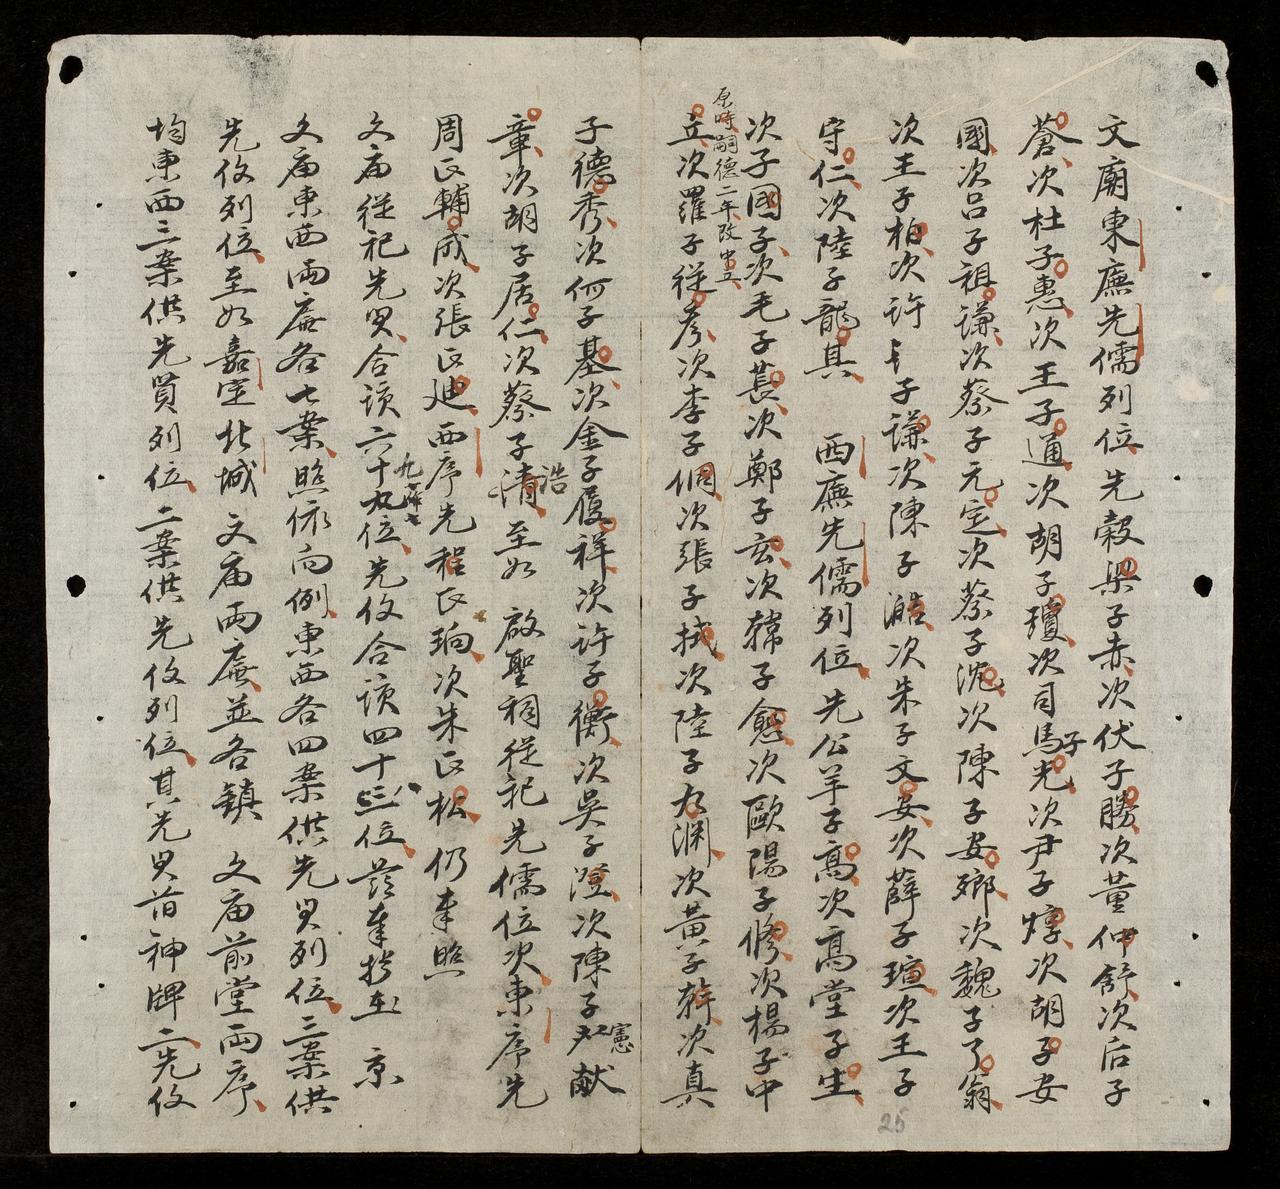 文廟東廡先儒列位先穀梁子赤次伏子勝次董仲舒次后子
蒼次杜子惠次王子通次胡子瓊次司馬子光次尹子焞次胡子安
國次呂子祖謙次蔡子元定次蔡子沈次陳子安鄉次魏子了翁
次王子柏次許子謙次陳子澔次朱子文安次薛子瑄次王子
守仁次陸子龍其 西廡先儒列位先公羊子高次高堂子生
次子國子次毛子萇次鄭子玄次韓子愈次歐陽子修次楊子中
原時嗣德二年改中立
立次羅子從彥次李子侗次張子栻次陸子九淵次黃子榦次真
子德秀次何子基次金子履祥次許子衡次吳子澄次陳子献
憲
章次胡子居仁次蔡子清至如 啟聖祠從祀先儒位次東序先
浩
周氏輔成次張氏迪西序先程氏珦次朱氏松仍奉照
文庙從祀先贤合該六十九位先佼合該四十三位 奉 在 京
文庙東西兩廡各七案照依向例東西各四案供先贤列位三案供
先佼列位至如嘉定北城 文庙兩廡並各鎮 文庙前堂兩序
均東西三案供先賢列位二案供先佼列位其先贤前神牌二先佼
25